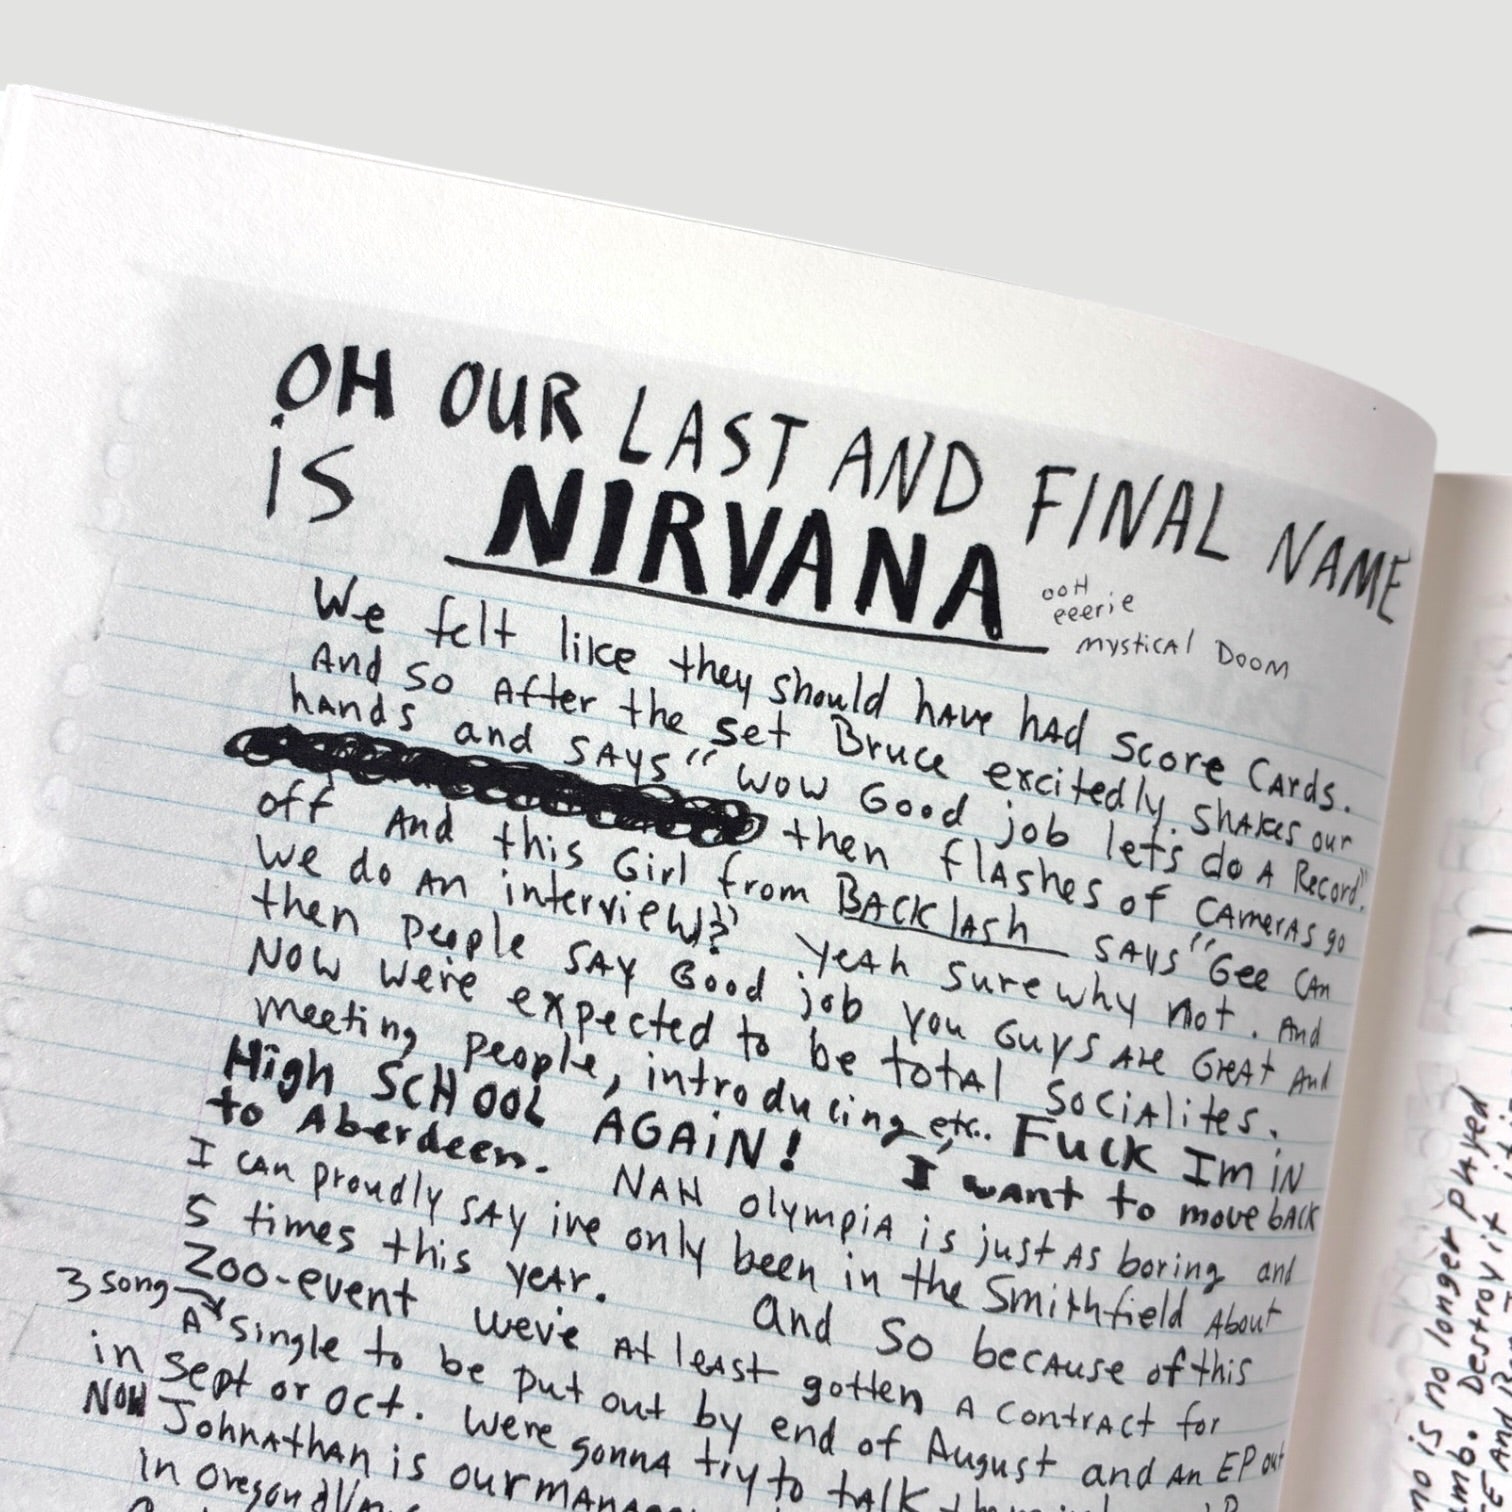 OH OUR LAST AND FINAL NAME
iS NIRVANA
ooH
eeerie
mystical Doom
We felt like they should have had score Cards.
And so After the set Bruce excitedly shakes our
hands and says "wow Good job lets do A Record"
then flashes of Cameras go
off And this Girl from BACKlash says "Gee CAn
we do An interview?" yeah sure why not. And
then people say Good job you Guys Are Great And
Now were expected to be total socialites.
meeting people, introducing etc.. Fuck Im iN
High SCHOOL AGAiN! I want to move back
to Aberdeen. NAH olympia is just As boring and
I can proudly say ive only been in the Smithfield About
5 times this year. and so because of this
Zoo-event weve At least gotten A contract for
3 song
A single to be put out by end of August and An EP out
in sept or oct. were gonna try to talk
Now Johnathan is our
in Oregon
no is no longer played
Destroy it